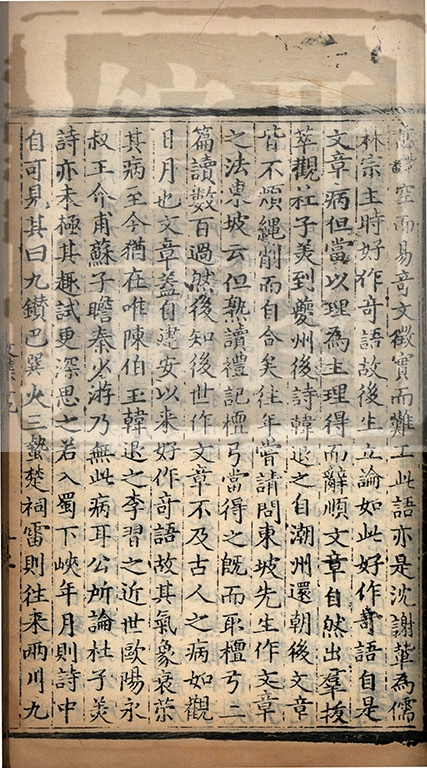 空而易奇文徵實而難工此語亦是沈謝輩為儒
林宗主時好作奇語故後生立論如此好作奇語自是
文章病但當以理為主理得而辭順文章自然出羣拔
萃觀杜子美到夔州後詩韓退之自潮州還朝後文章
皆不煩繩削而自合矣往年嘗請問東坡先生作文章
之法東坡云但熟讀禮記檀弓當得之既而取檀弓二
篇讀数百過然後知後世作文章不及古人之病如觀
日月也文章蓋自建安以来好作奇語故其氣象衰苶
其病至今猶在唯陳伯王韓退之李習之近世歐陽永
叔王介甫蘇子瞻秦少游乃無此病耳公所論杜子美
詩亦未極其趣試更深思之若入蜀下峽年月則詩中
自可見其曰九鑚巴巽火三蟄楚祠雷則往来兩川九